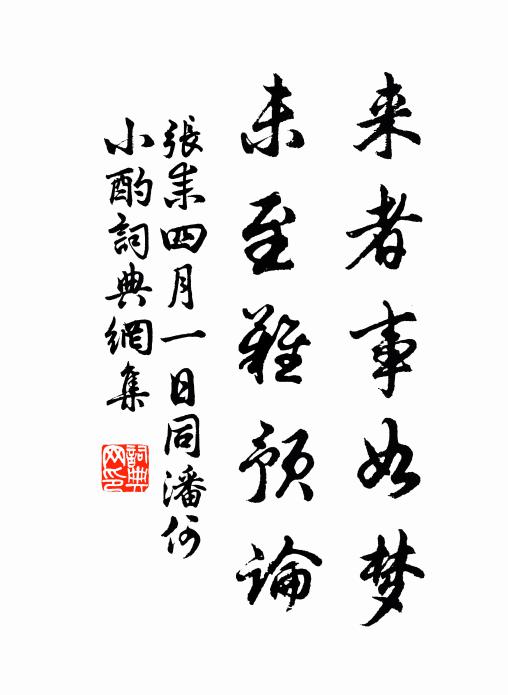 来者事如梦
未至难预论
張耒四月一日同潘何
小酌詞典網集
詞典網印